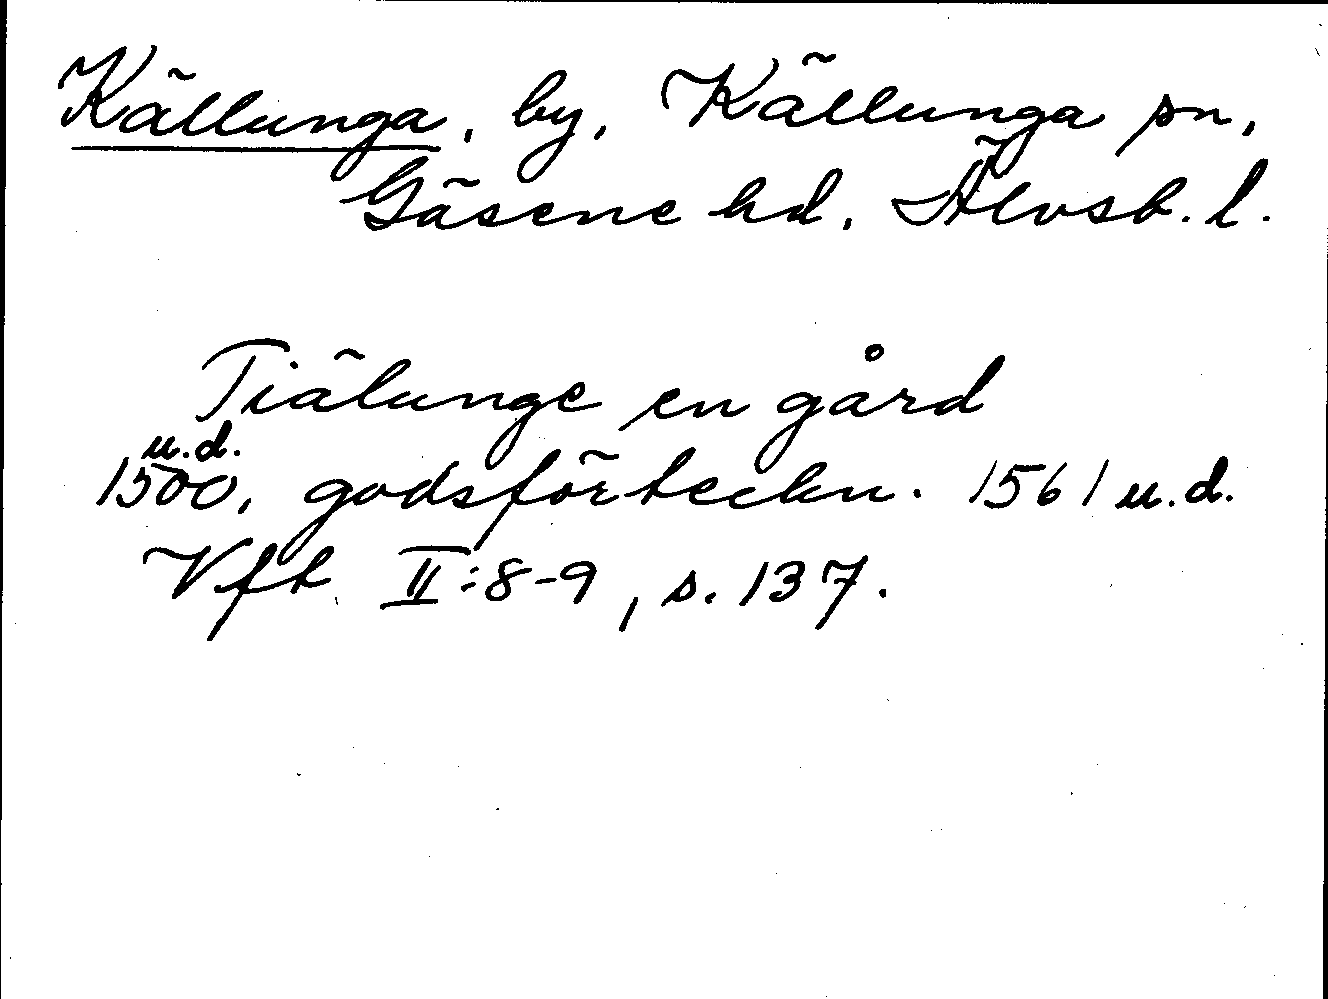 Källunga, by, Källunga sn,
Gäsene hd, Älvsb. l.
Tiälunge en gård
u.d.
1500, godsförteckn. 1561 u.d.
Vft II:8-9, s. 137.